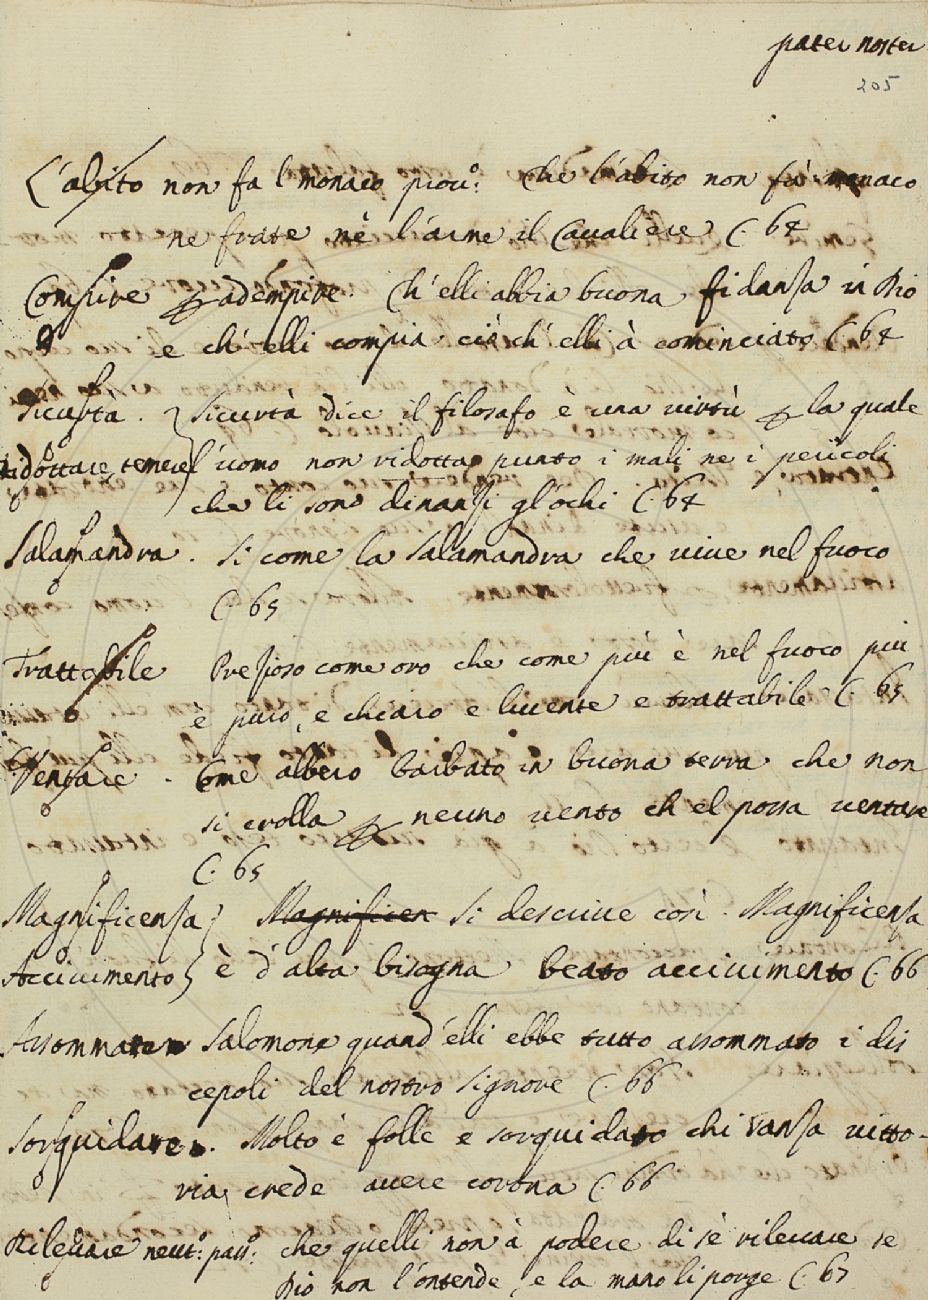 pater noster
205
L'abito non fa l monaco prou: Che l'abito non fà monaco
ne frate nè l'arme il Cavaliere C. 64
Compire p adempire. Ch'elli abbia buona fidanza in Dio
e ch'elli compia ciò ch'elli à cominciato C. 64
Sicurtà. Sicurtà dice il filosafo è una virtù p la quale
ridottare, temere l'uomo non ridotta punto i mali ne i pericoli
che li sono dinanzi gl'ochi C. 64
Salamandra. Si come la salamandra che vive nel fuoco
C. 65
Trattabile Prezioso come oro che come più è nel fuoco più
è puro, e chiaro e lucente e trattabile C. 65
Ventare. Come albero barbato in buona terra che non
si crolla p neuno vento ch el possa ventare
C. 65
Magnificenza Magnificen si descrive così. Magnificenza
Accivimento è d'alta bisogna beato accivimento C. 66
Assommare Salomone quand'elli ebbe tutto assommato i dis
cepoli del nostro signore C. 66
Sorquidare. Molto è folle e sorquidato chi sanza vitto-
ria crede avere corona C. 66
Rilevare neut: pass: che quelli non à podere di sè rilevare se
Dio non l'ontende, e la mano li porge C. 67